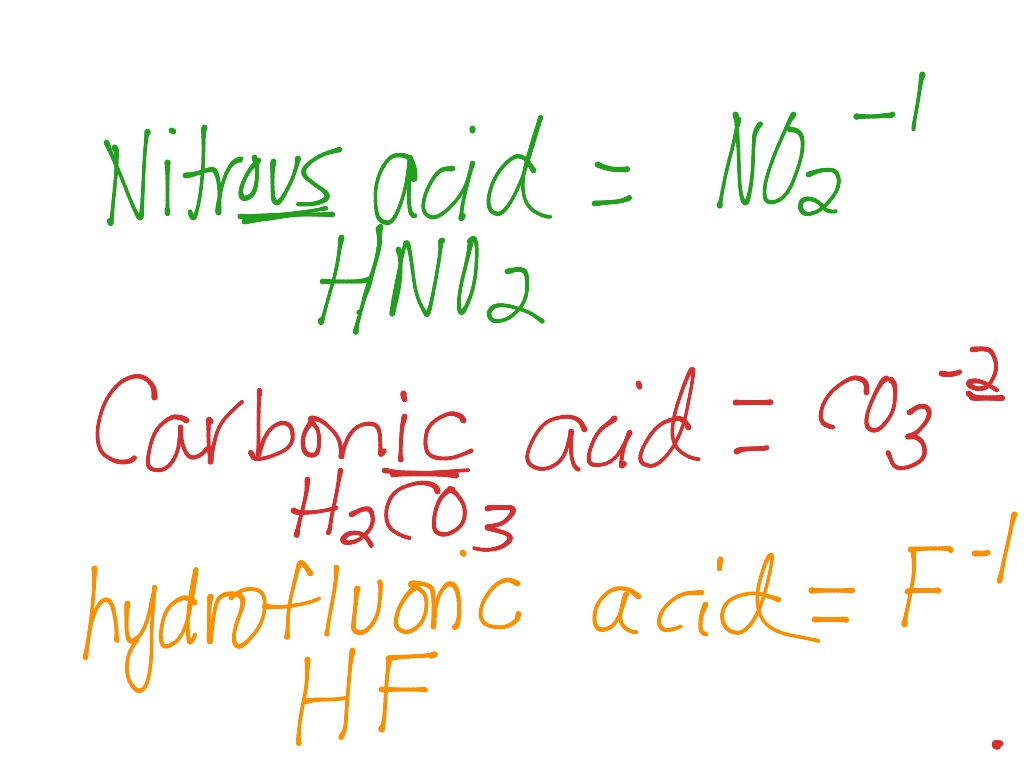 Nitrous acid = NO₂⁻¹
HNO₂
Carbonic acid = CO₃⁻²
H₂CO₃
hydrofluoric acid = F⁻¹
HF